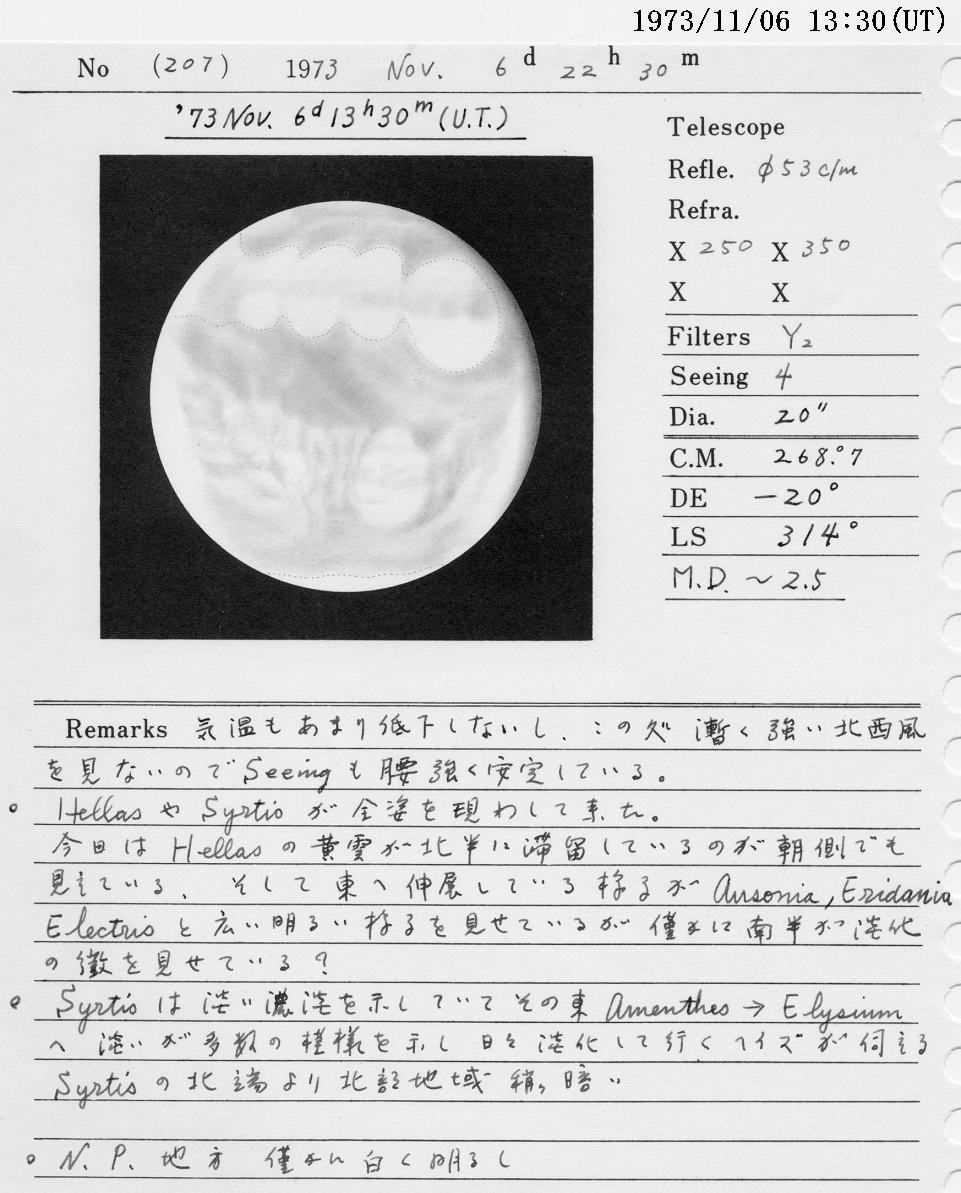 1973/11/06 13:30(UT)
No (207) 1973 Nov. 6 d 22 h 30 m
'73 Nov. 6d 13h 30m (U.T.)
Telescope
Refle. φ53 c/m
Refra.
X 250 X 350
X X
Filters Y2
Seeing 4
Dia. 20"
C.M. 268.°7
DE -20°
LS 314°
M.D. ~ 2.5
Remarks 気温もあまり低下しないし、この 漸く強い北西風
を見ないのでSeeingも腰強く安定している。
○ HellasやSyrtisが全姿を現わして来た。
今日はHellasの黄雲が北半に滞留しているのが朝側でも
見えている、そして東へ伸展している様子が Ausonia, Eridania
Electrisと広い明るい様子を見せているが 僅かに南半が淡化
の徴を見せている?
○ Syrtisは淡い濃淡を示していてその東 Amenthes → Elysium
へ 淡いが多数の模様を示し日々淡化して行くヘイズが伺える
Syrtisの北端より北部地域 稍々暗い
○ N.P. 地方 僅かに白く明るし